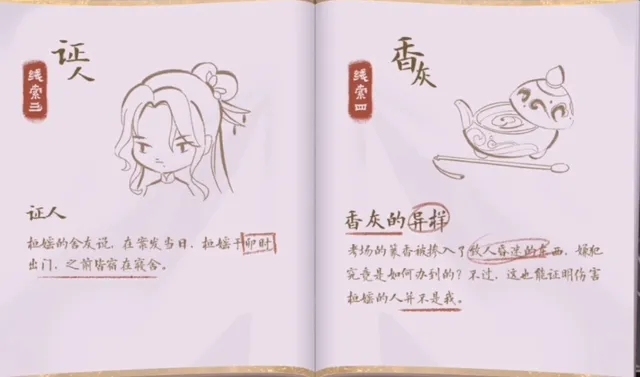 证人
线索三
证人
桓媱的舍友说，在案发当日，桓媱于卯时
出门，之前皆宿在寝舍。
香灰
线索四
香灰的异样
考场的篆香被掺入了致人昏迷的东西，嫌犯
究竟是如何办到的？不过，这也能证明伤害
桓媱的人并不是我。